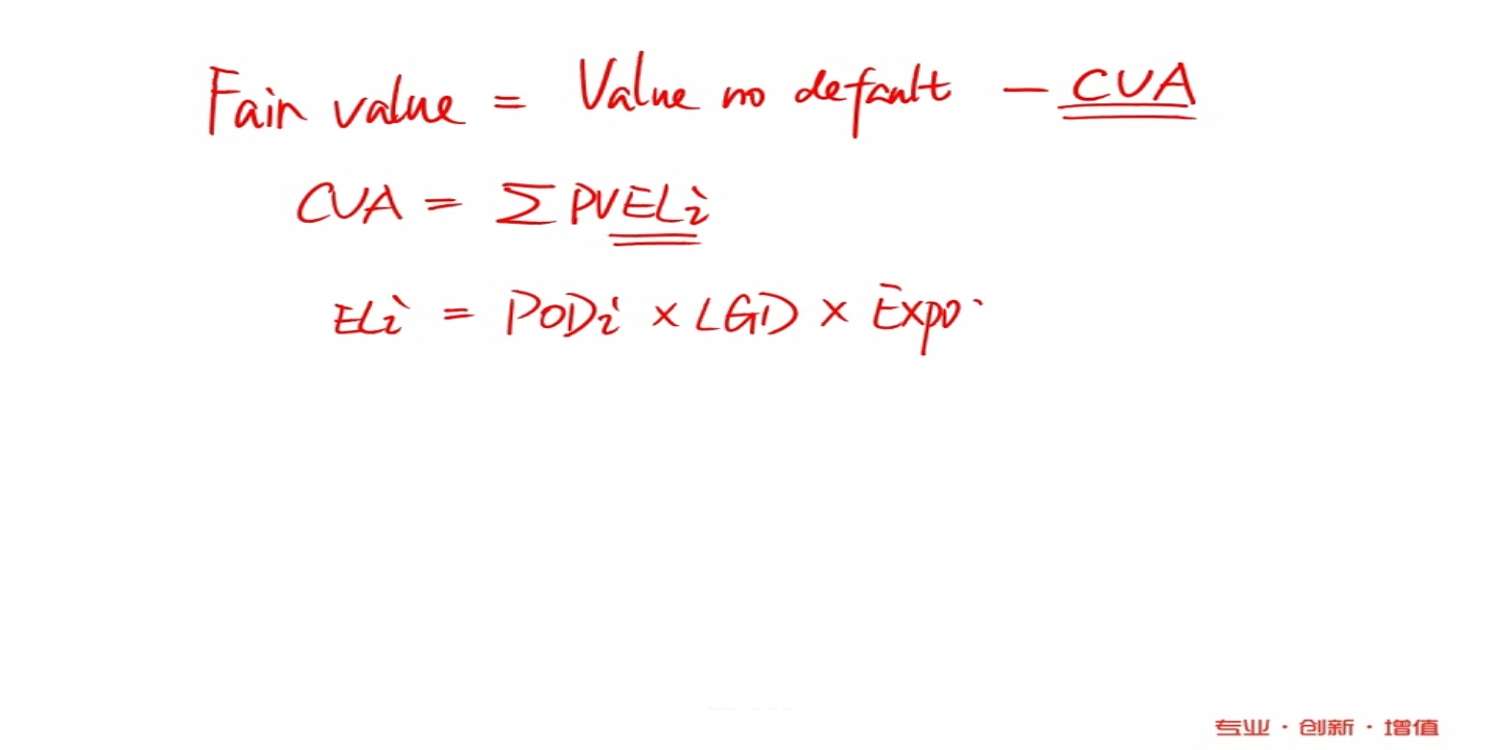 Fair value = Value no default - CVA
CVA = ∑ PVELi
ELi = PODi × LGD × Expo
专业·创新·增值